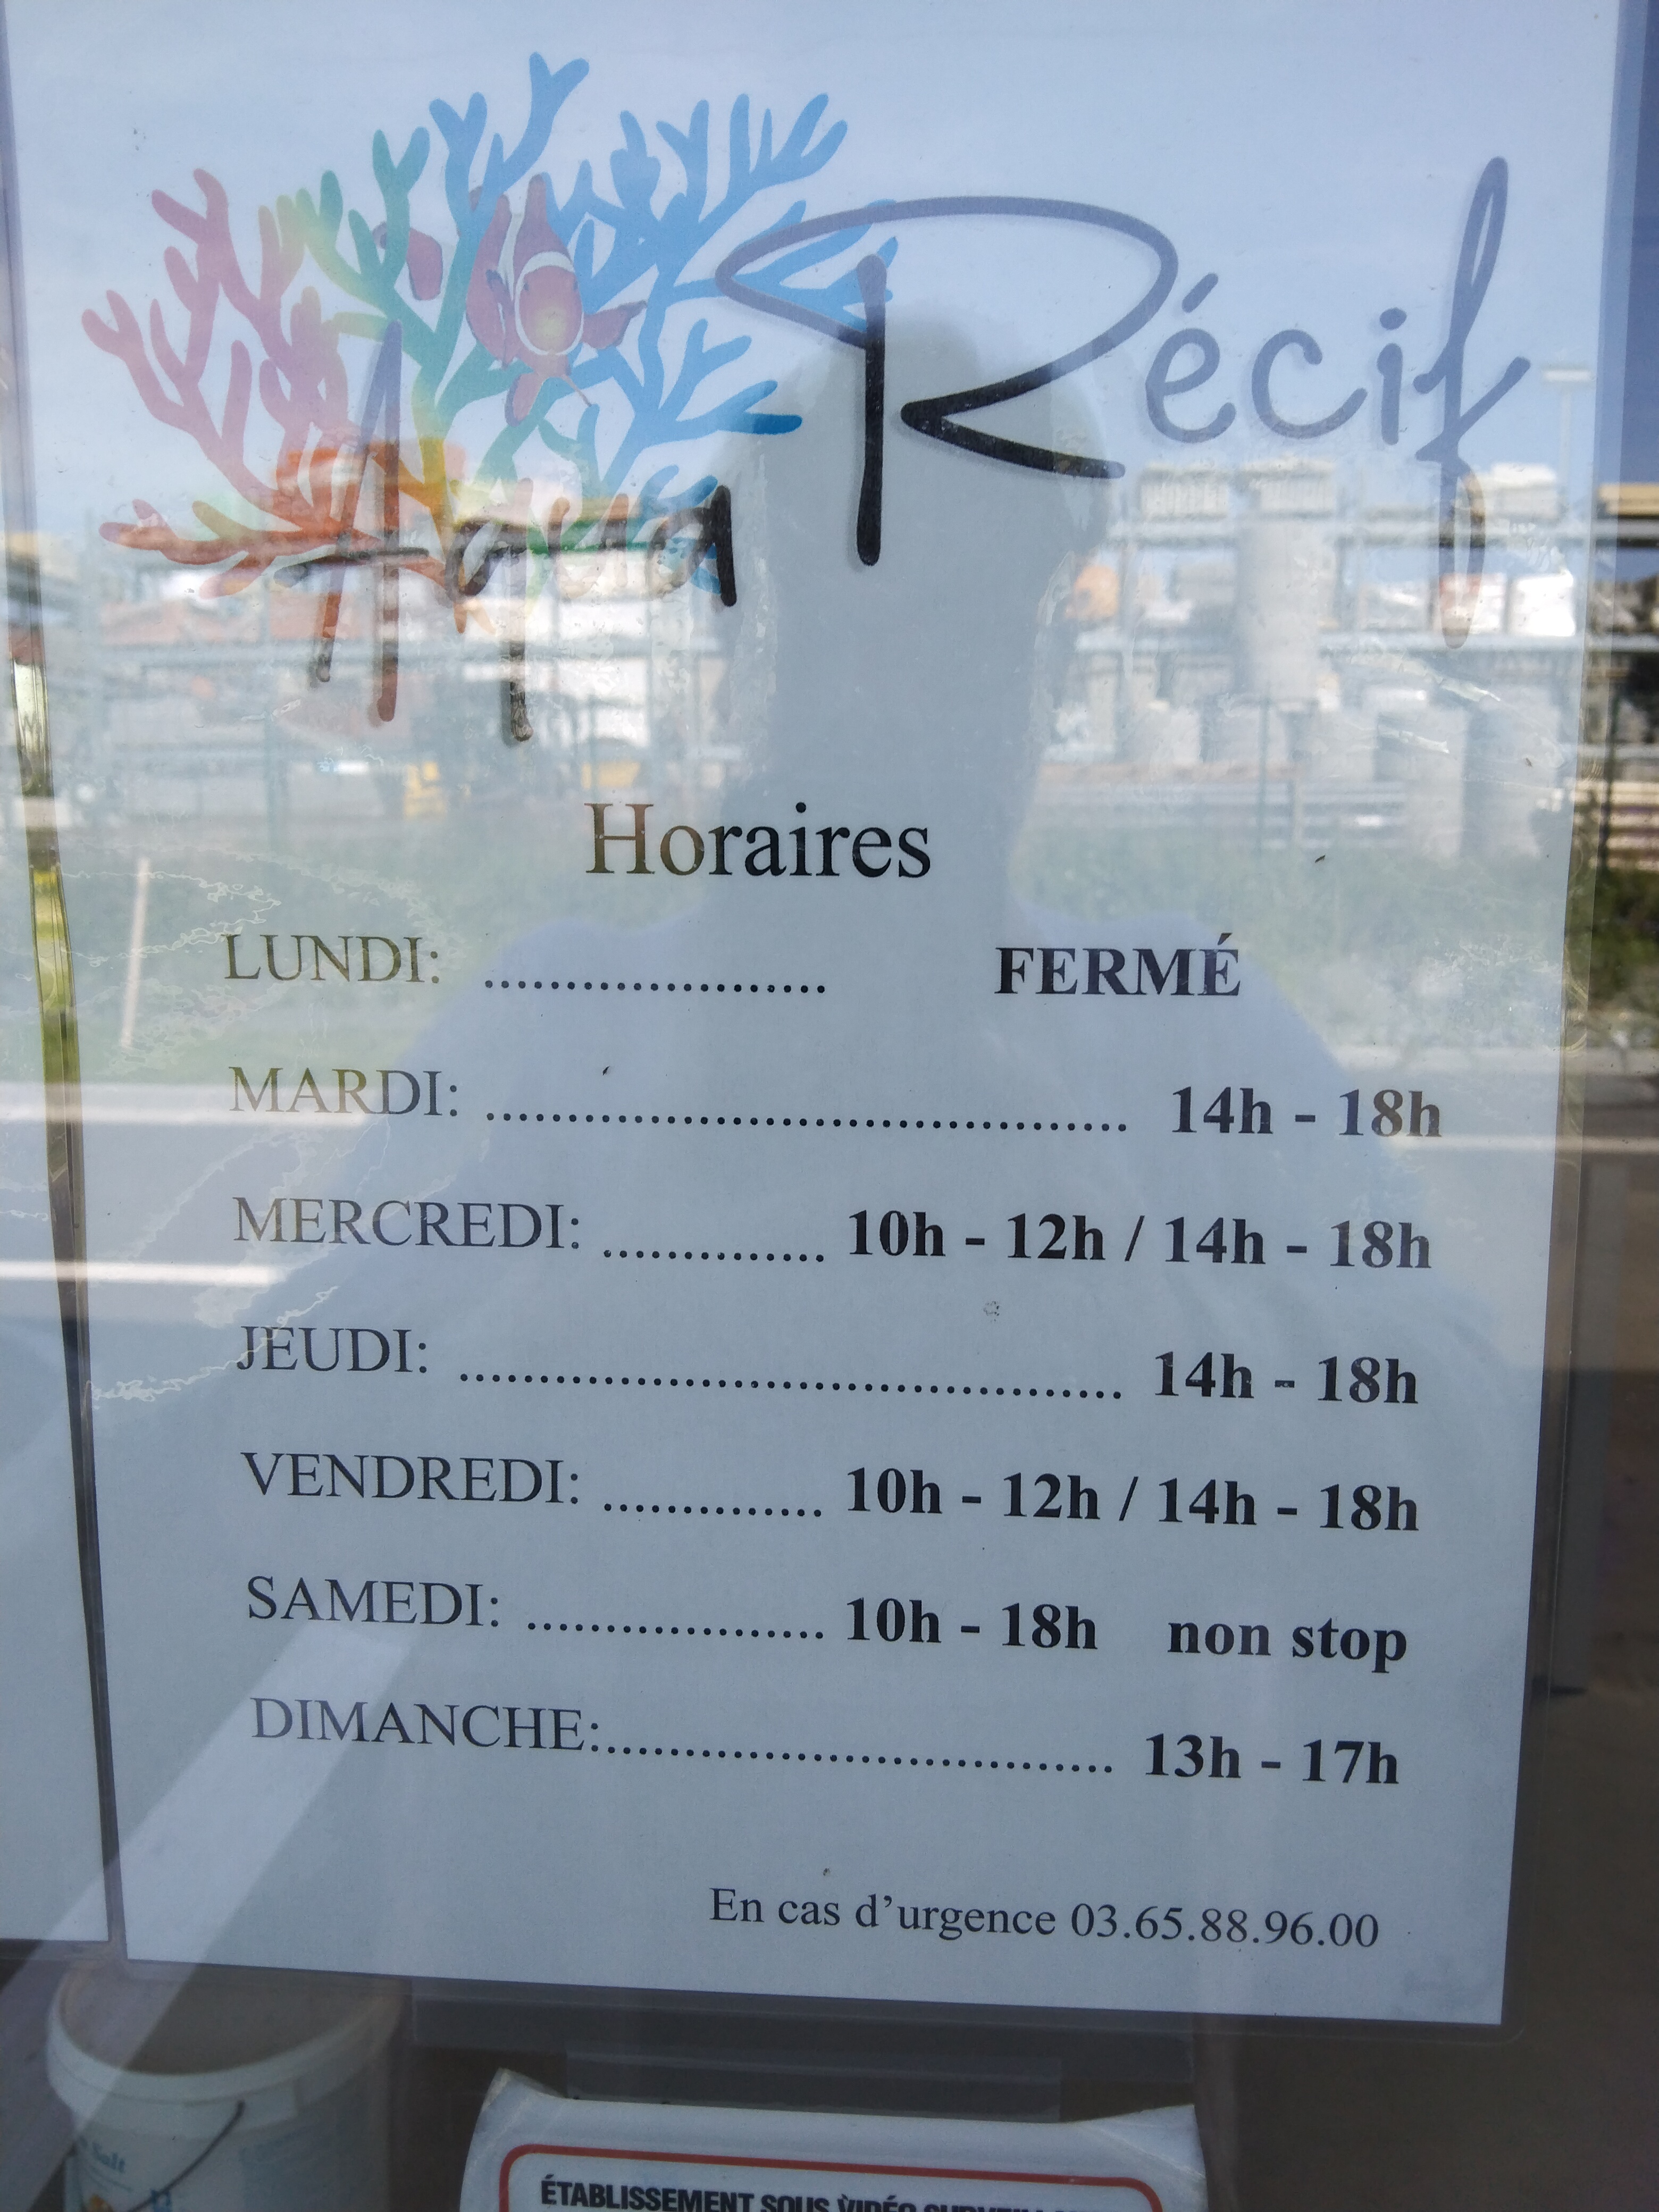 Aqua Récif
Horaires
LUNDI: ..................... FERMÉ
MARDI: ........................................ 14h - 18h
MERCREDI: .............. 10h - 12h / 14h - 18h
JEUDI: ......................................... 14h - 18h
VENDREDI: .............. 10h - 12h / 14h - 18h
SAMEDI: ................... 10h - 18h non stop
DIMANCHE:................................ 13h - 17h
En cas d'urgence 03.65.88.96.00
Salt
ÉTABLISSEMENT SOUS VIDÉO